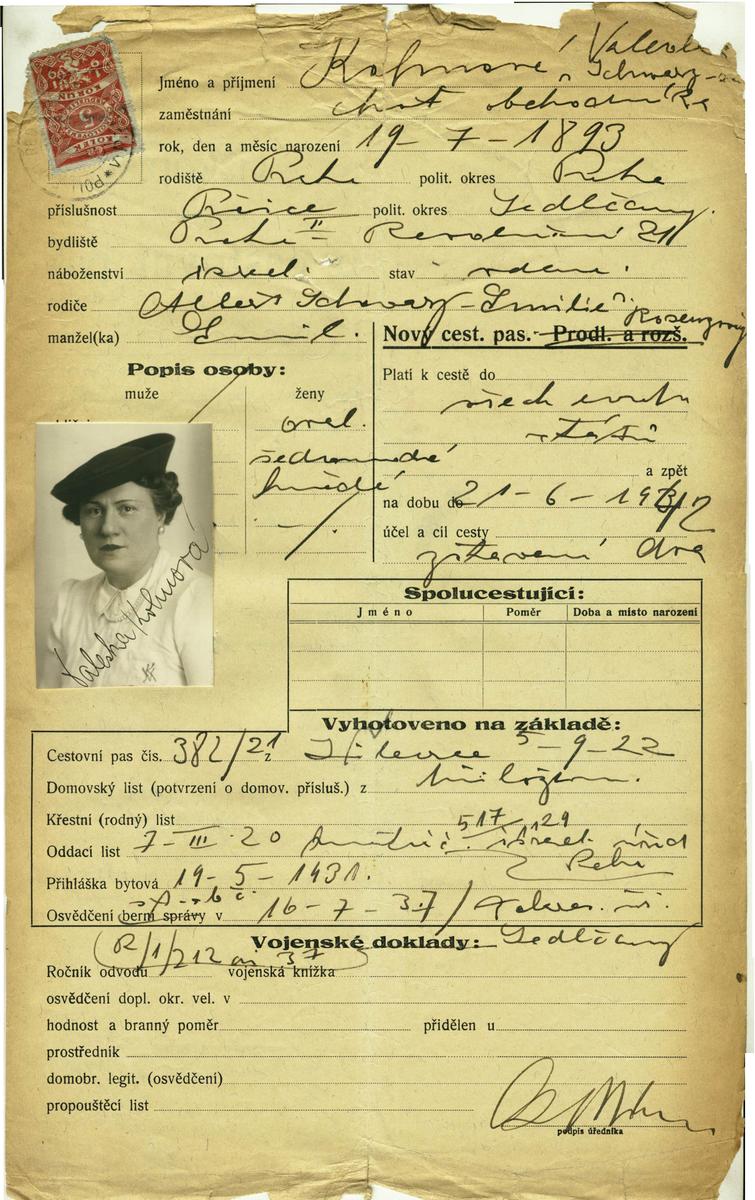 Jméno a příjmení Kohnová Valerie
Schwarz-
zaměstnání choť obchodníka
rok, den a měsíc narození 19 - 7 - 1893
rodiště Praha polit. okres Praha
příslušnost polit. okres Sedlčany.
bydliště Praha II Revoluční 21
náboženství israel. stav vdaná
rodiče Albert Schwarz - Emilie r. Rosenzweig
manžel(ka) Emil.
Nový cest. pas. - Prodl. a rozš.
Popis osoby:
muže ženy
Platí k cestě do
oval. všech evrop.
států
šedomodré
hnědé
a zpět
na dobu do 21 - 6 - 19
účel a cíl cesty
-/-
Valeska Kohnová
Spolucestující:
Jméno Poměr Doba a místo narození
Vyhotoveno na základě:
Cestovní pas čís. 382/21 z 5 - 9 - 22
Domovský list (potvrzení o domov. přísluš.) z
Křestní (rodný) list 517/129
Oddací list 7 - III - 20 israel. úřad
Praha
Přihláška bytová 19 - 5 - 1931.
Osvědčení berní správy v 16 - 7 - 37 /
Sedlčany
Vojenské doklady:
R/1/212 ai 37
Ročník odvodu vojenská knížka
osvědčení dopl. okr. vel. v
hodnost a branný poměr přidělen u
prostředník
domobr. legit. (osvědčení)
propouštěcí list
podpis úředníka